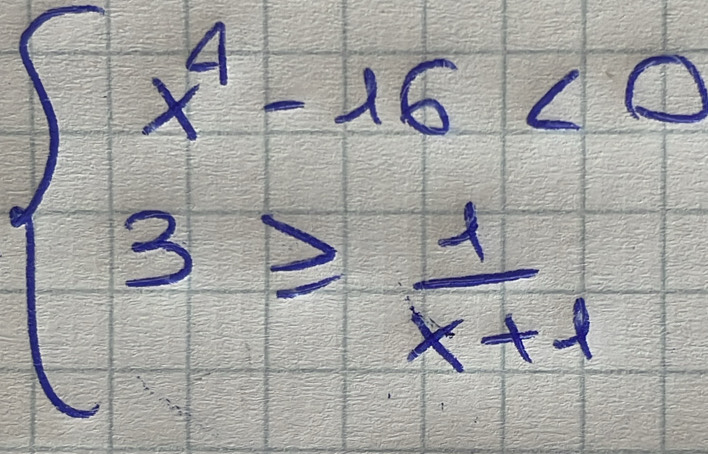 x⁴ - 16 < 0
3 ≥ 1/(x+1)